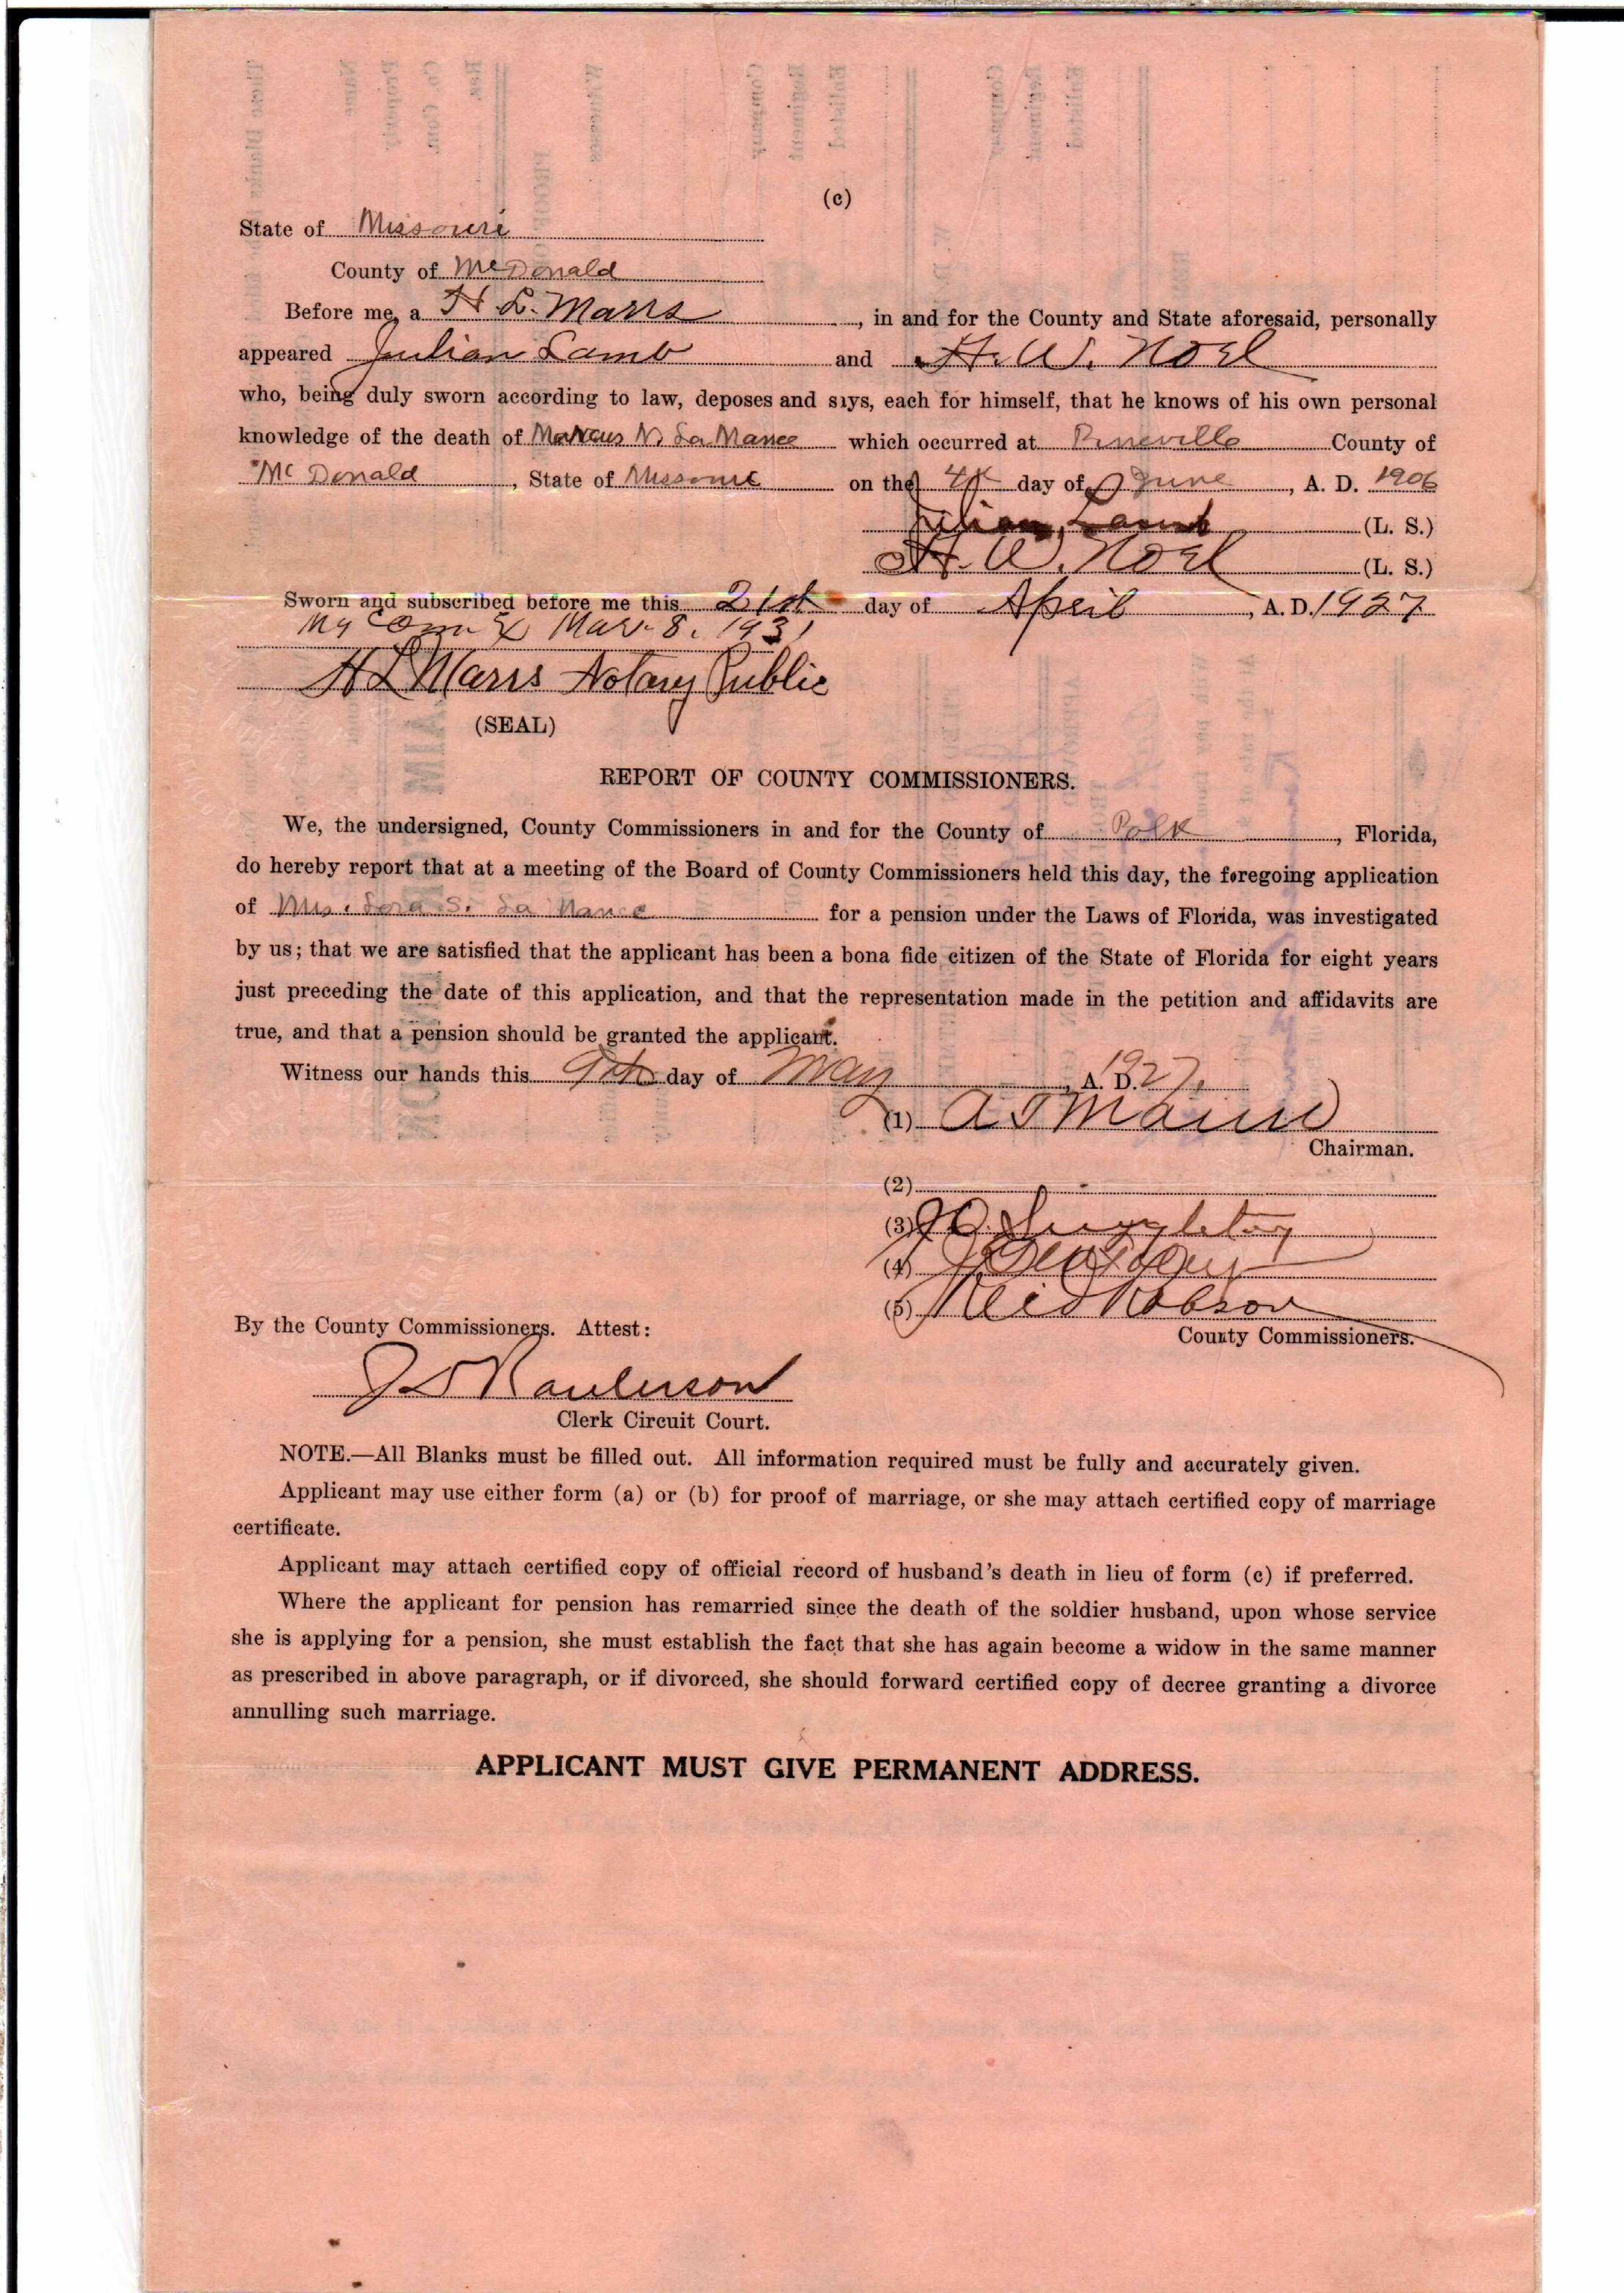 (c)
State of Missouri
County of McDonald
Before me, a H. L. Marrs, in and for the County and State aforesaid, personally
appeared Julian Lamb and H. W. Noel
who, being duly sworn according to law, deposes and says, each for himself, that he knows of his own personal
knowledge of the death of Marcus N. La Mance which occurred at Pineville County of
McDonald, State of Missouri on the 4th day of June, A. D. 1906
Julian Lamb (L. S.)
H. W. Noel (L. S.)
Sworn and subscribed before me this 21st day of April, A. D. 1927
My Com Ex Mar. 8. 1931
H L Marrs Notary Public
(SEAL)
REPORT OF COUNTY COMMISSIONERS.
We, the undersigned, County Commissioners in and for the County of Polk, Florida,
do hereby report that at a meeting of the Board of County Commissioners held this day, the foregoing application
of Mrs. Lora S. La Mance for a pension under the Laws of Florida, was investigated
by us; that we are satisfied that the applicant has been a bona fide citizen of the State of Florida for eight years
just preceding the date of this application, and that the representation made in the petition and affidavits are
true, and that a pension should be granted the applicant.
Witness our hands this 9th day of May, A. D. 1927.
(1) A T Mann
Chairman.
(2)
(3) Singletary
(4)
(5) Reid Robson
County Commissioners.
By the County Commissioners. Attest:
J D Raulerson
Clerk Circuit Court.
NOTE.—All Blanks must be filled out. All information required must be fully and accurately given.
Applicant may use either form (a) or (b) for proof of marriage, or she may attach certified copy of marriage
certificate.
Applicant may attach certified copy of official record of husband's death in lieu of form (c) if preferred.
Where the applicant for pension has remarried since the death of the soldier husband, upon whose service
she is applying for a pension, she must establish the fact that she has again become a widow in the same manner
as prescribed in above paragraph, or if divorced, she should forward certified copy of decree granting a divorce
annulling such marriage.
APPLICANT MUST GIVE PERMANENT ADDRESS.